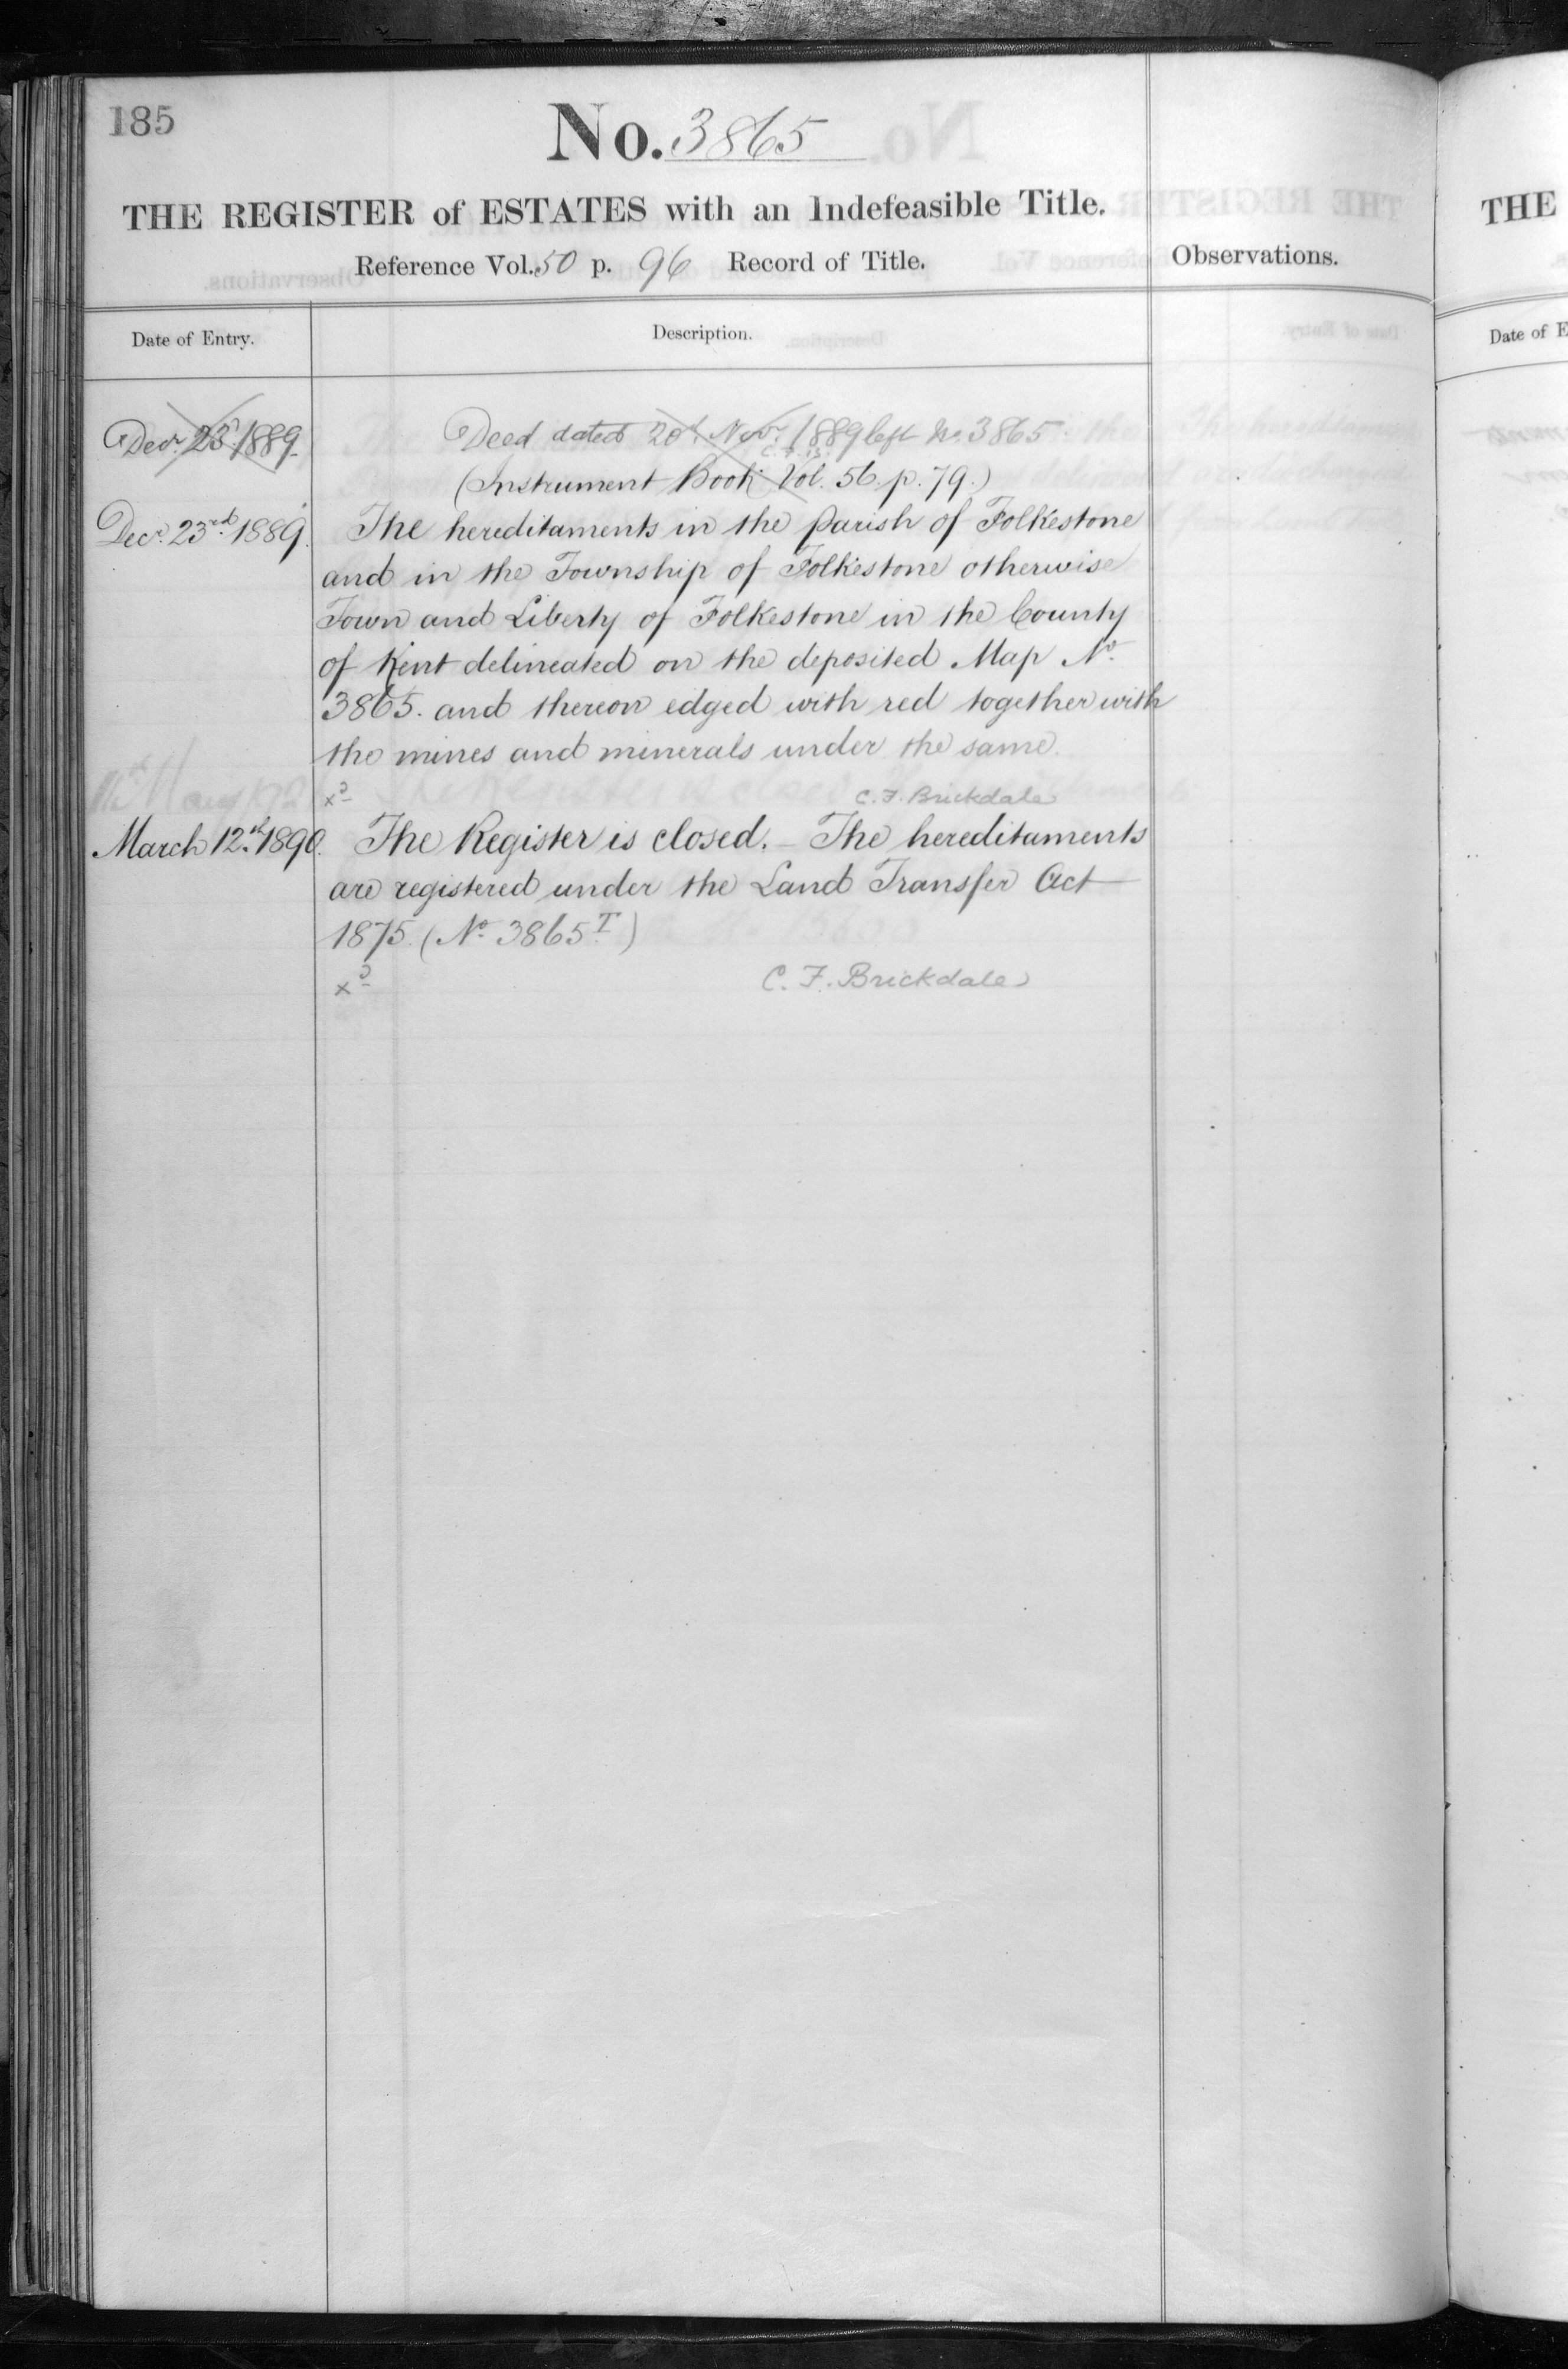 185
No. 3865
THE REGISTER of ESTATES with an Indefeasible Title.
Reference Vol. 50 p. 96 Record of Title.
Observations.
Date of Entry.
Description.
Decr. 23d. 1889
Deed dated 20th. Novr. 1889 left No. 3865.
C.F.B.
(Instrument Book Vol. 56. p. 79.)
Decr. 23rd. 1889.
The hereditaments in the Parish of Folkestone
and in the Township of Folkestone otherwise
Town and Liberty of Folkestone in the County
of Kent delineated on the deposited Map No.
3865. and thereon edged with red together with
the mines and minerals under the same.
xd
C. F. Brickdale
March 12th. 1890.
The Register is closed. – The hereditaments
are registered under the Land Transfer Act
1875. (No. 3865 T.)
xd
C. F. Brickdale
THE
Date of E